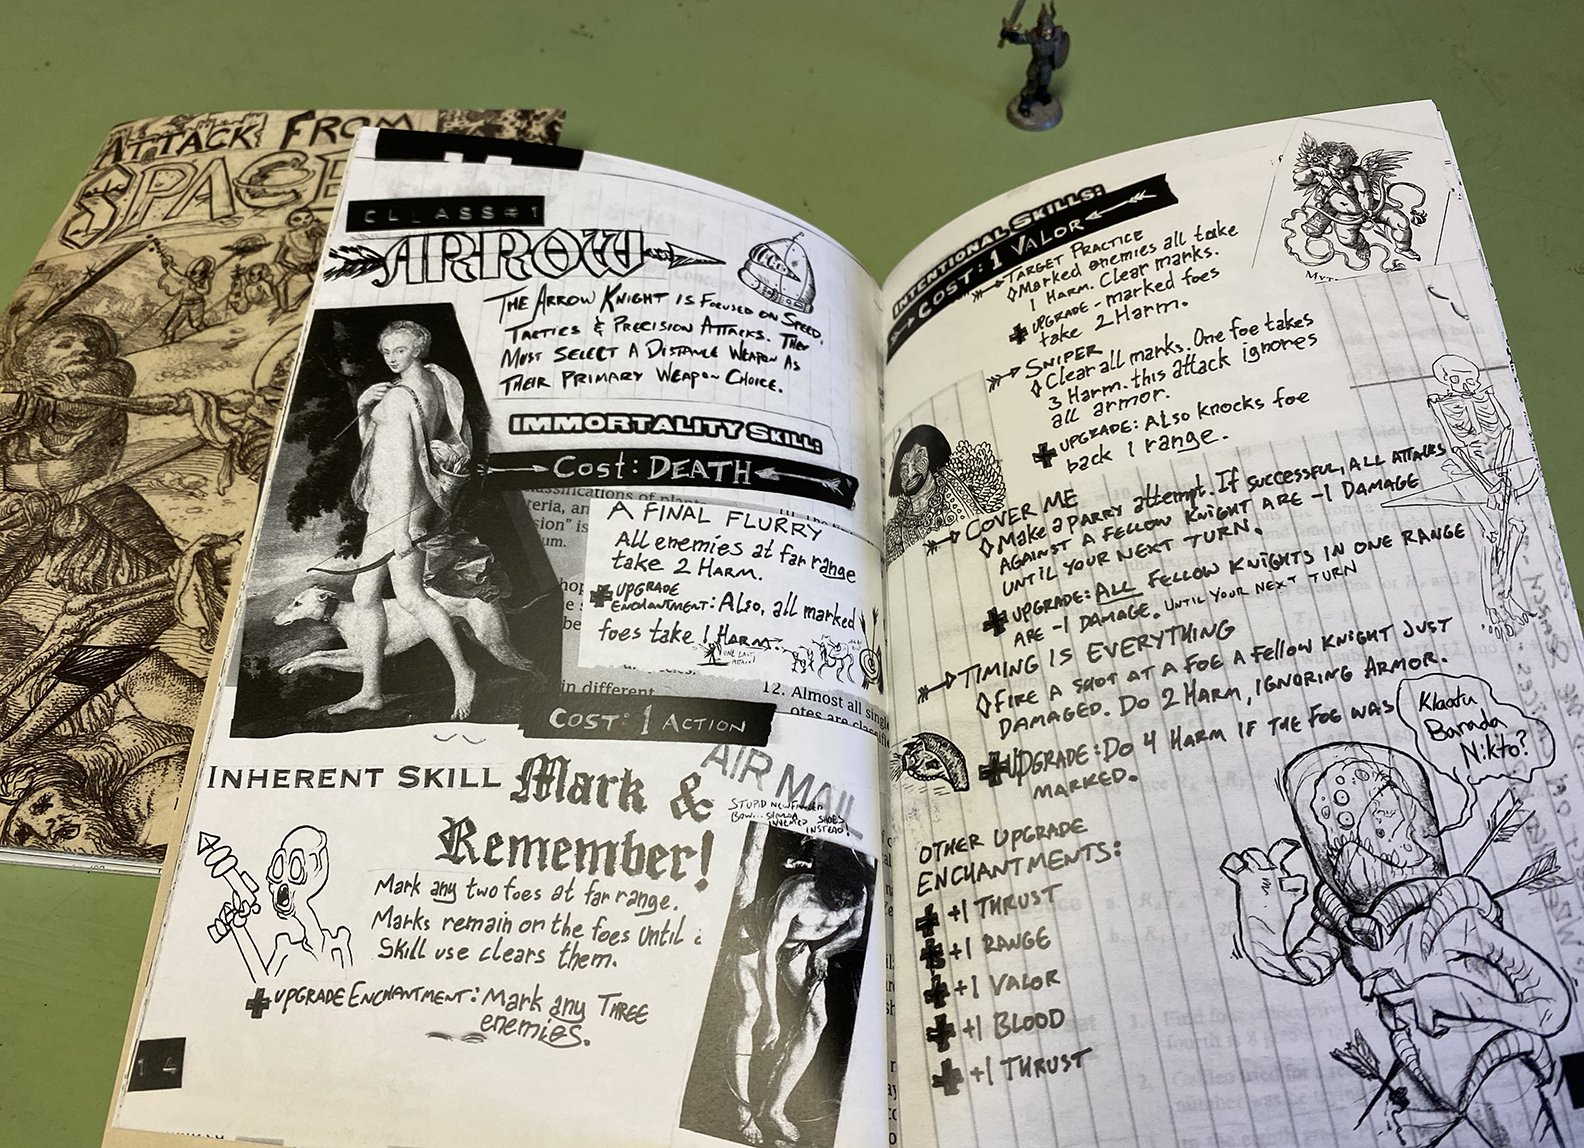 ATTACK FROM
SPACE
CLLASS#1
ARROW
THE ARROW KNIGHT IS FOCUSED ON SPEED,
TACTICS & PRECISION ATTACKS. THEY
MUST SELECT A DISTANCE WEAPON AS
THEIR PRIMARY WEAPON CHOICE.
IMMORTALITY SKILL:
COST: DEATH
A FINAL FLURRY
All enemies at far range
take 2 HARM.
UPGRADE
ENCHANTMENT: Also, all marked
foes take 1 HARM.
in different
12. Almost all
COST: 1 ACTION
INHERENT SKILL Mark &
Remember!
AIR MAIL
STUPID NEWFANGLED
INSTEAD!
Mark any two foes at far range.
Marks remain on the foes until a
Skill use clears them.
UPGRADE ENCHANTMENT: Mark any THREE
enemies.
14
INTENTIONAL SKILLS:
COST: 1 VALOR
TARGET PRACTICE
Marked enemies all take
1 HARM. Clear marks.
UPGRADE - marked foes
take 2 Harm.
SNIPER
Clear all marks. One foe takes
3 Harm. this attack ignores
all armor.
UPGRADE: Also knocks foe
back 1 range.
COVER ME
Make a parry attempt. If successful, ALL ATTACKS
AGAINST A FELLOW KNIGHT ARE -1 DAMAGE
UNTIL YOUR NEXT TURN.
UPGRADE: ALL FELLOW KNIGHTS IN ONE RANGE
ARE -1 DAMAGE. UNTIL YOUR NEXT TURN
TIMING IS EVERYTHING
FIRE A SHOT AT A FOE A FELLOW KNIGHT JUST
DAMAGED. DO 2 HARM, IGNORING ARMOR.
UPGRADE: DO 4 HARM IF THE FOE WAS
MARKED.
Klaatu
Barada
Nikto?
OTHER UPGRADE
ENCHANTMENTS:
+1 THRUST
+1 RANGE
+1 VALOR
+1 BLOOD
+1 THRUST